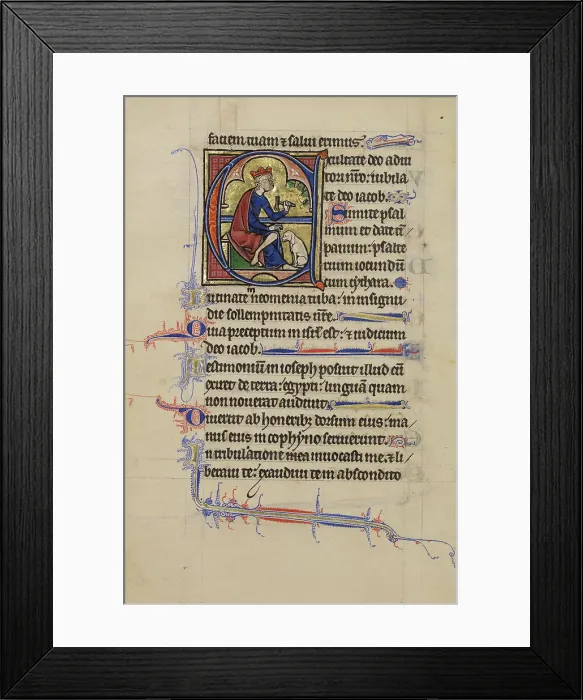 faciem tuam ⁊ salui erimus.
Exultate deo adiu
tori nr̄o: iubila
te deo iacob.
Sumite psal
mum et date tȳ
panum: psalte
rium iocundū
cum cythara.
Bucinate in neomenia tuba: in insigni
die sollempnitatis ur̄e.
Quia preceptum in isrl̄ est: ⁊ iudicium
deo iacob.
Testimoniū in ioseph posuit illud cū
exiret de terra egypti: linguā quam
non nouerat audiuit.
Diuertit ab honeribȝ dorsum eius: ma
nus eius in cophyno seruierunt.
In tribulatione mea inuocasti me. ⁊ li
beraui te: exaudiui te in abscondito